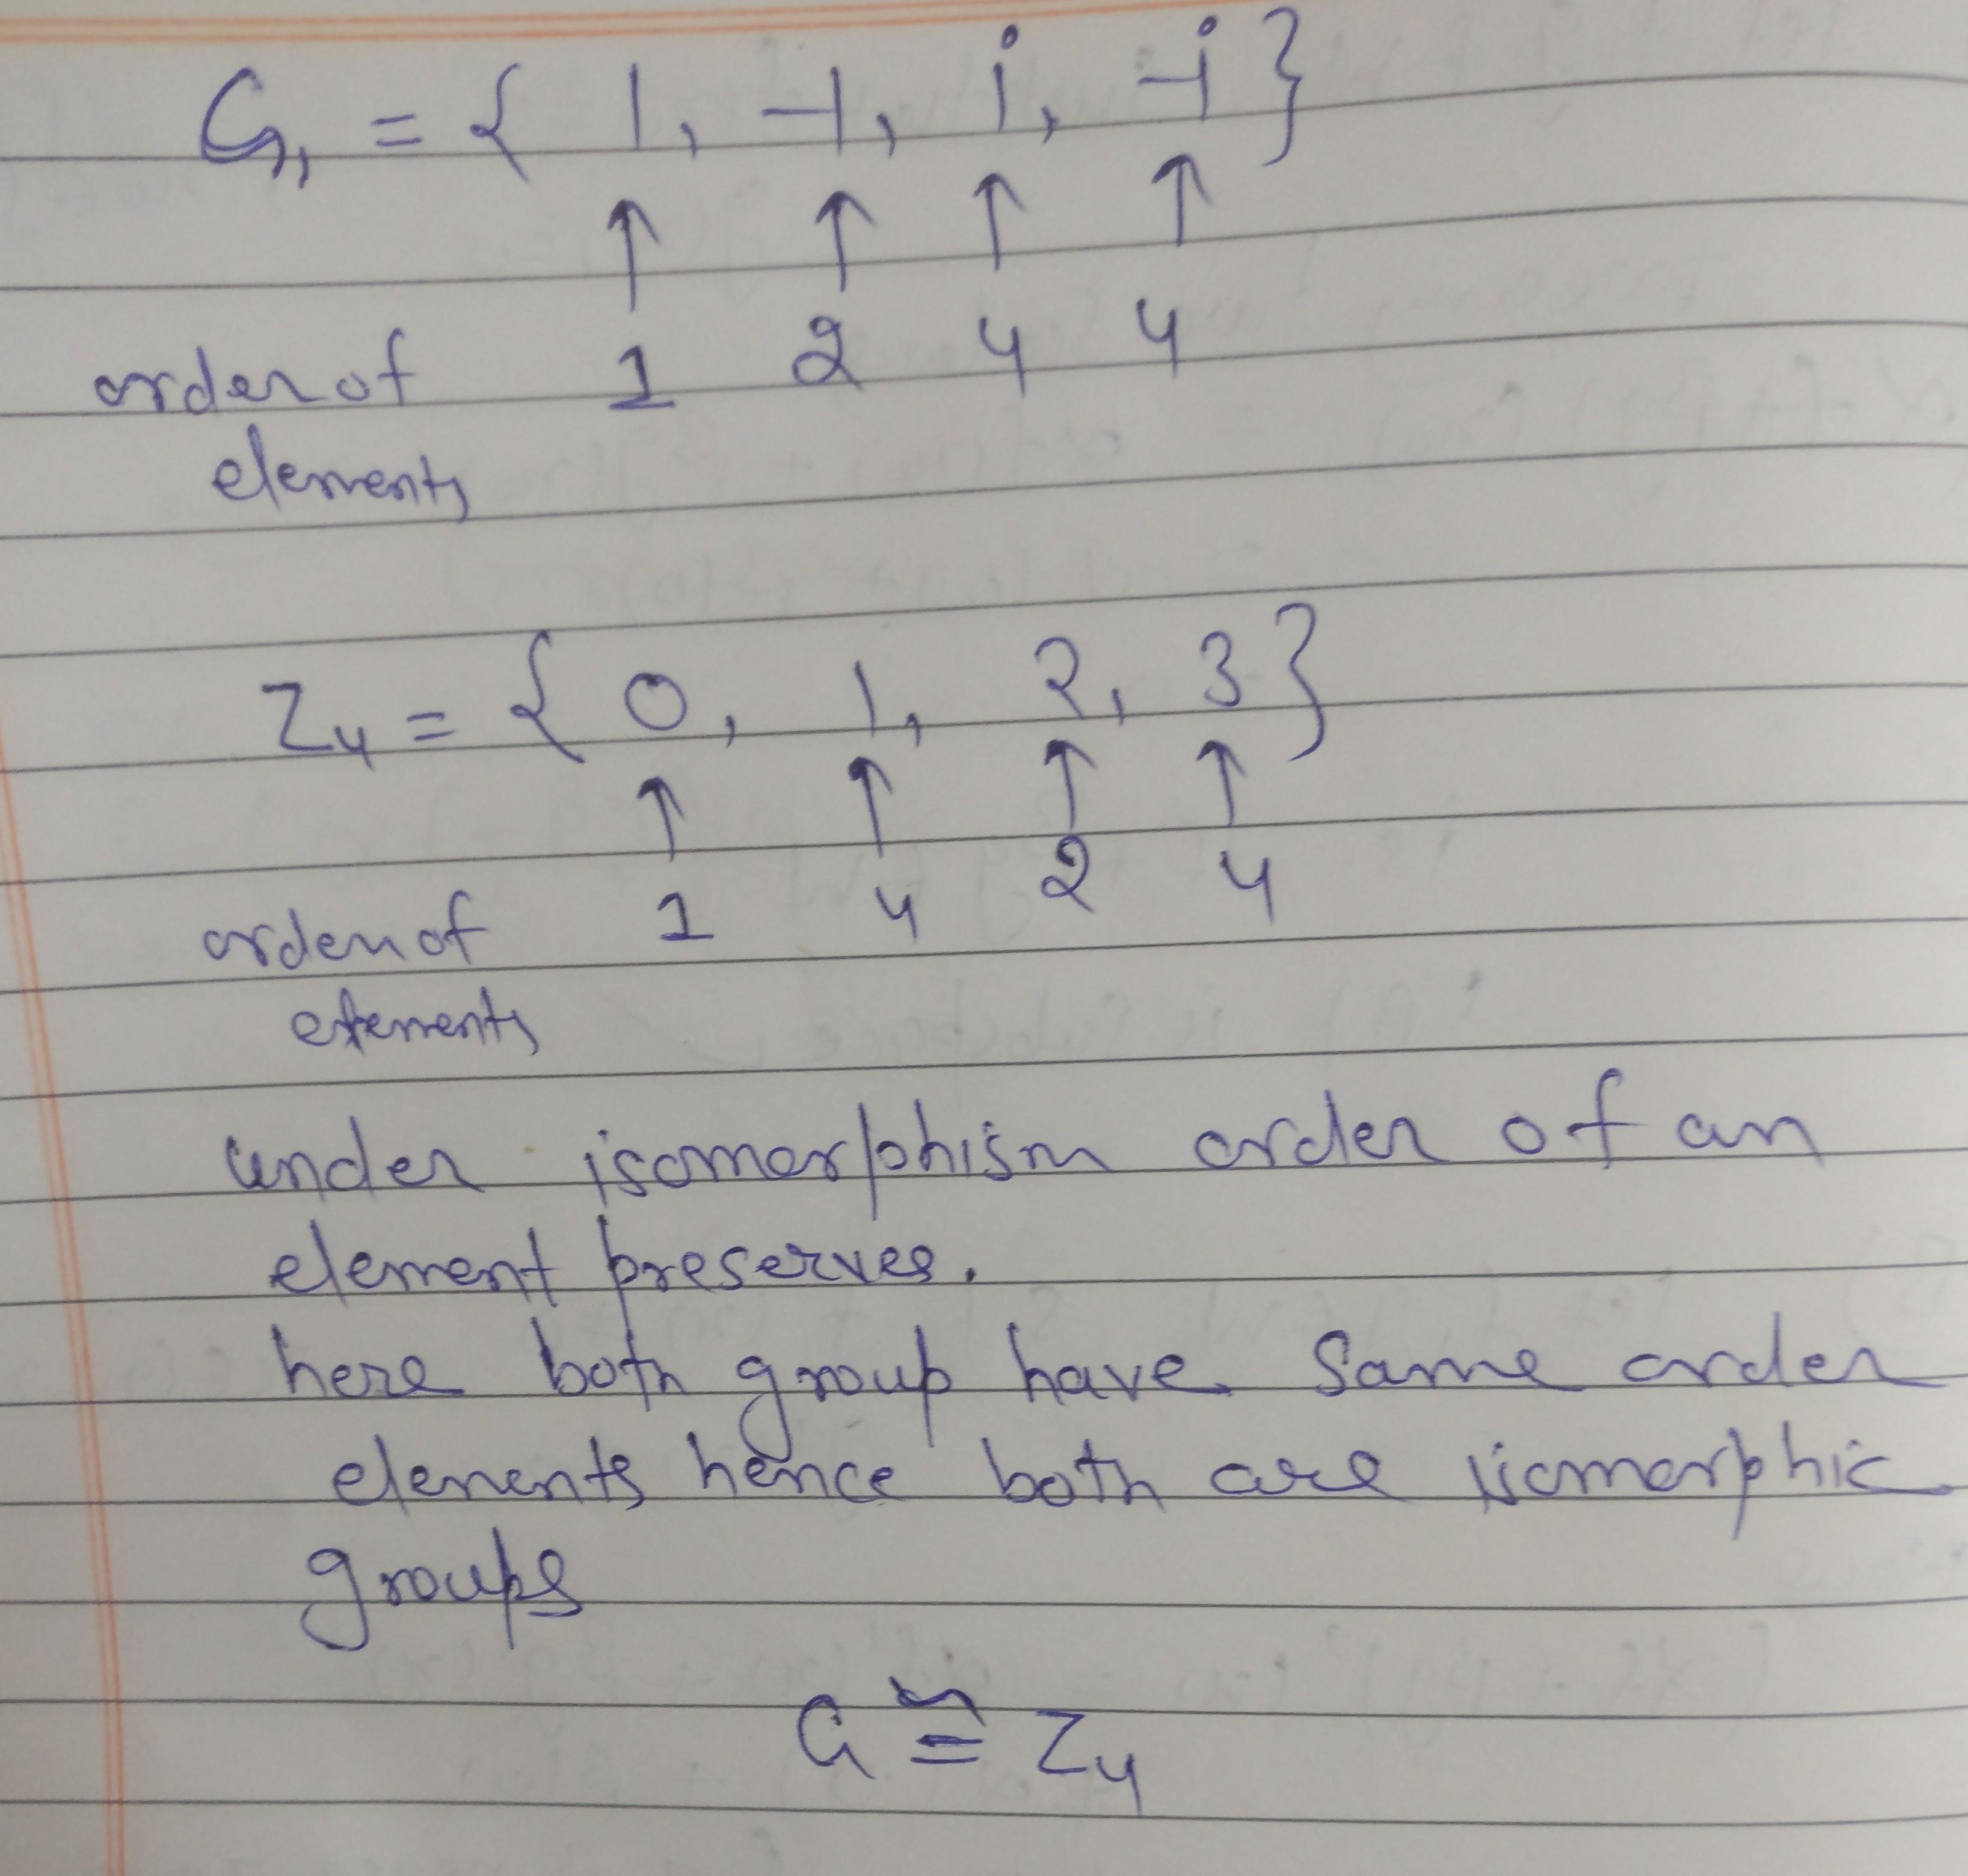 G₁ = { 1, -1, i, -i }
↑ ↑ ↑ ↑
order of 1 2 4 4
elements
Z₄ = { 0, 1, 2, 3 }
↑ ↑ ↑ ↑
order of 1 4 2 4
elements
under isomorphism order of an
element preserves.
here both group have same order
elements hence both are isomorphic
groups
G ≅ Z₄